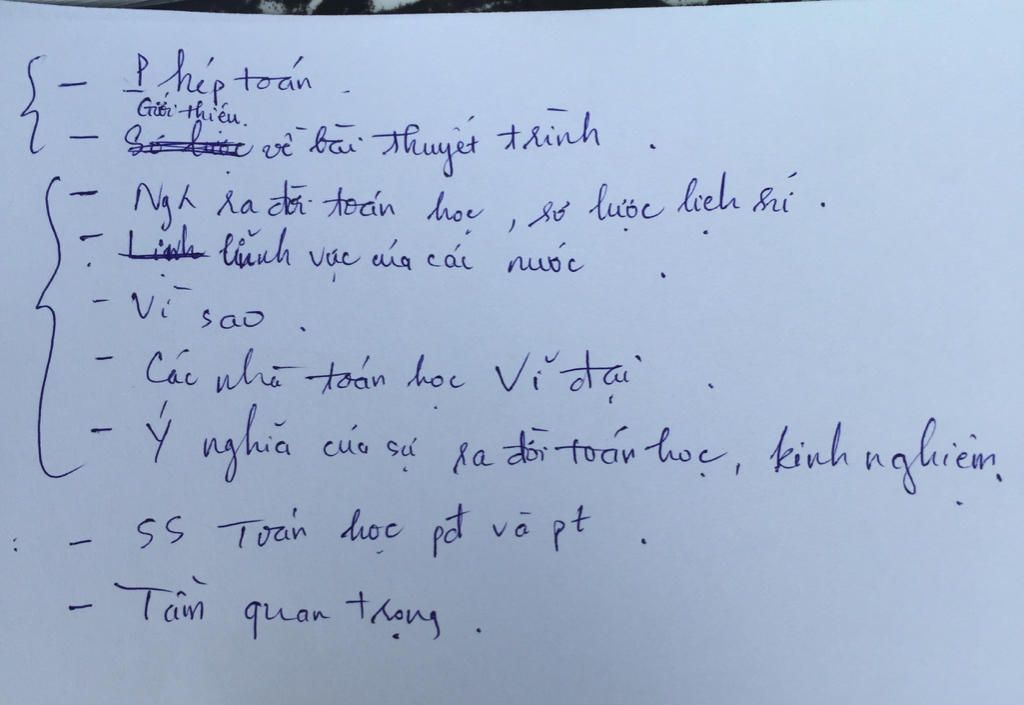 - Phép toán.
Giới thiệu
- Sơ lược về bài thuyết trình.
- Ngh ra đời toán học, sơ lược lịch sử.
- Lịnh lĩnh vực của các nước.
- Vì sao.
- Các nhà toán học Vĩ đại.
- Ý nghĩa của sự ra đời toán học, kinh nghiệm.
- SS Toán học pđ và pt.
- Tầm quan trọng.